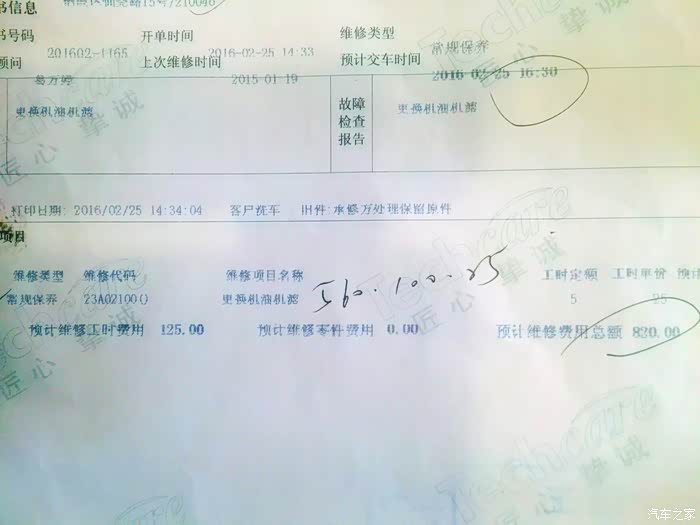 书信息
书号码 开单时间 维修类型
201602-1165 2016-02-25 14:33 常规保养
顾问 上次维修时间 预计交车时间
2015-01-19 2016-02-25 16:30
更换机油机滤 故障检查报告 更换机油机滤
打印日期: 2016/02/25 14:34:04 客户洗车 旧件: 承修方处理保留原件
项目
维修类型 维修代码 维修项目名称 工时定额 工时单价 预计
常规保养 23A02100() 更换机油机滤 5 25
560.100.25
预计维修工时费用 125.00 预计维修零件费用 0.00 预计维修费用总额 820.00
Techcare
匠心 挚诚
汽车之家